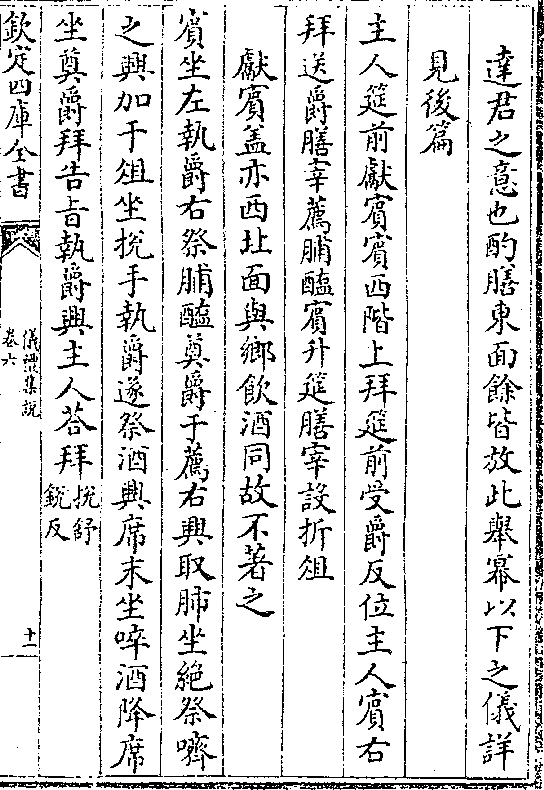 達君之意也酌膳東面餘皆放此舉冪以下之儀詳
見後篇
主人筵前獻賓賓西階上拜筵前受爵反位主人賓右
拜送爵膳宰薦脯醢賓升筵膳宰設折俎
獻賓盖亦西北面與鄉飲酒同故不著之
賓坐左執爵右祭脯醢奠爵于薦右興取肺坐絶祭嚌
之興加于俎坐挩手執爵遂祭酒興席末坐啐酒降席
坐奠爵拜告旨執爵興主人荅拜挩舒
銳反
欽定四庫全書
儀禮集説
卷六
十一